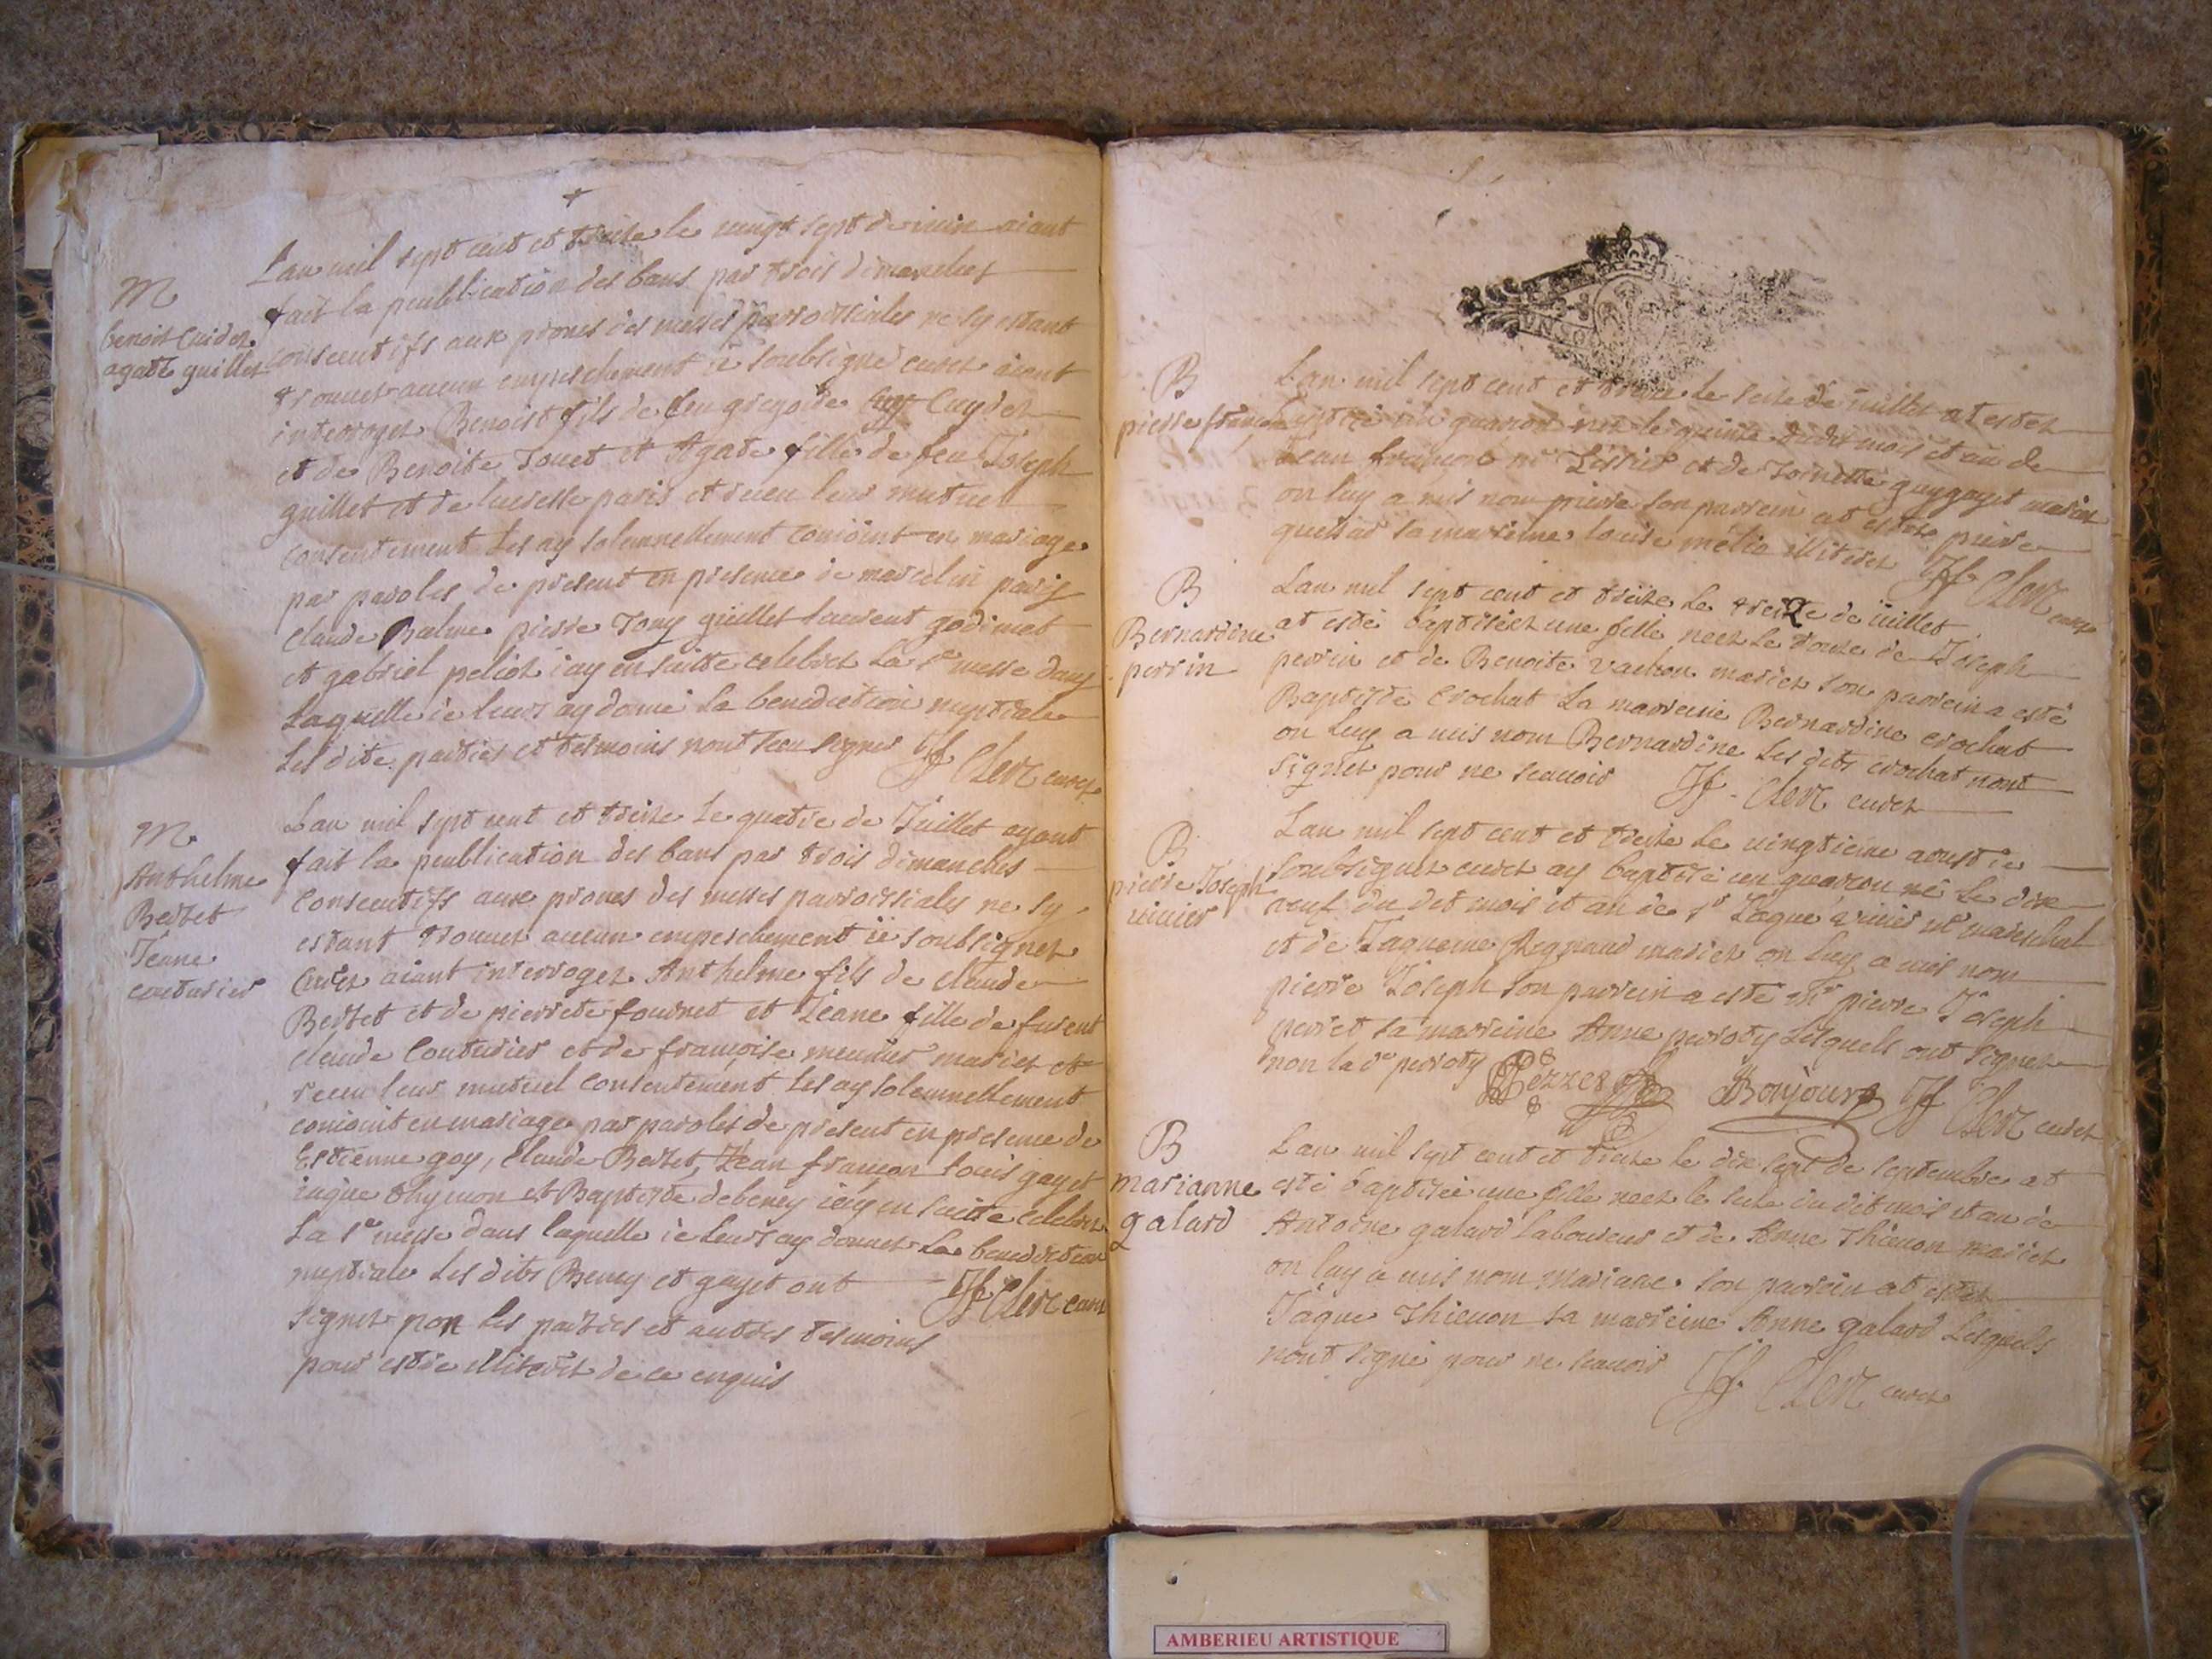 L'an mil sept cent et treize le vingt sept de iuin aiant
M
fait la peublication des bans par trois dimanches
benoit Cuidet
consecutifs aux prones des messes parroissiales ne sy estant
agate guillet
trouuer aucun empeschement ie soubsigné curez aiant
interroger Benoist fils de feu gregoire Cuydet
et de Benoite Touet et Agate fille de feu Joseph
guillet et de paris et receu leur mutuel
consentement Les ay solemnellement conioint en mariage
par paroles de present en presence de marcelin paris
claude Balme pierre Tony guillet laurent godimet
et gabriel peliot i'ay en suitte celebrer la ste messe dans
Laquelle ie leurs ay donné la benediction nuptiale
Les dite parties et tesmoins nont sceu signer Clerc curez
L'an mil sept cent et treize Le quatre de Juillet ayant
M
fait la peublication des bans par trois dimanches
Anthelme
Consecutifs aux prones des messes parroissiales ne sy
Bertet
estant trouuer aucun empeschement ie soubsigner
Jeane
Curez aiant interroger Anthelme fils de claude
couturier
Bertet et de pierrete fournet et Jeane fille de furent
claude Couturier et de françoise meunier mariez et
receu leur mutuel consentement Les ay solemnellement
conioint en mariage par paroles de present en presence de
Estienne goy, Claude Bertet, Jean françon Louis gayet
iaque thymon et Baptiste debeney i'ay en suitte celebrer
La ste messe dans laquelle ie leurs ay donner La benediction
nuptiale Les dits Beney et gayet ont Clerc curez
signer non Les parties et autres tesmoins
pour estre illiterez de ce enquis
B
L'an mil sept cent et treize le seize de iuillet at ester
pierre
baptisé un guarcon né le quinze dudit mois et an de
Jean françois et de Toinette guygoyet mariez
on luy a mis nom pierre son parrein at ester pierre
sa marreine louise illiterez Clerc curez
B
L'an mil sept cent et treize Le treize de iuillet
Bernardine
at esté baptisée une fille neez Le douze de Joseph
perrin
perrin et de Benoite vachon mariez son parrein a esté
Baptiste Crochat La marreine Bernardine crochat
on Luy a mis nom Bernardine Les dits crochat nont
signer pour ne scauoir Clerc curez
L'an mil sept cent et treize Le vingtieme aoust ie
B
soubsigner curez ay baptisé un guarcon né Le dixe
pierre Joseph
neuf du dit mois et an de sr Jaque viuier me mareschal
uiuier
et de Jaqueme Regnaud mariez on luy a mis nom
pierre Joseph son parrein a esté mr pierre Joseph
perret sa marreine Anne perroty Lesquels ont signer
non la de perroty Bonjour Clerc curez
B
L'an mil sept cent et treize le dix sept de septembre at
marianne
esté baptisée une fille neez le seize du dit mois et an de
galard
Antoine galard laboureur et de Anne Thieuon mariez
on luy a mis nom mariane son parrein at ester
Jaque Thieuon sa marreine Anne galard Lesquels
nont signé pour ne scauoir Clerc curez
AMBERIEU ARTISTIQUE